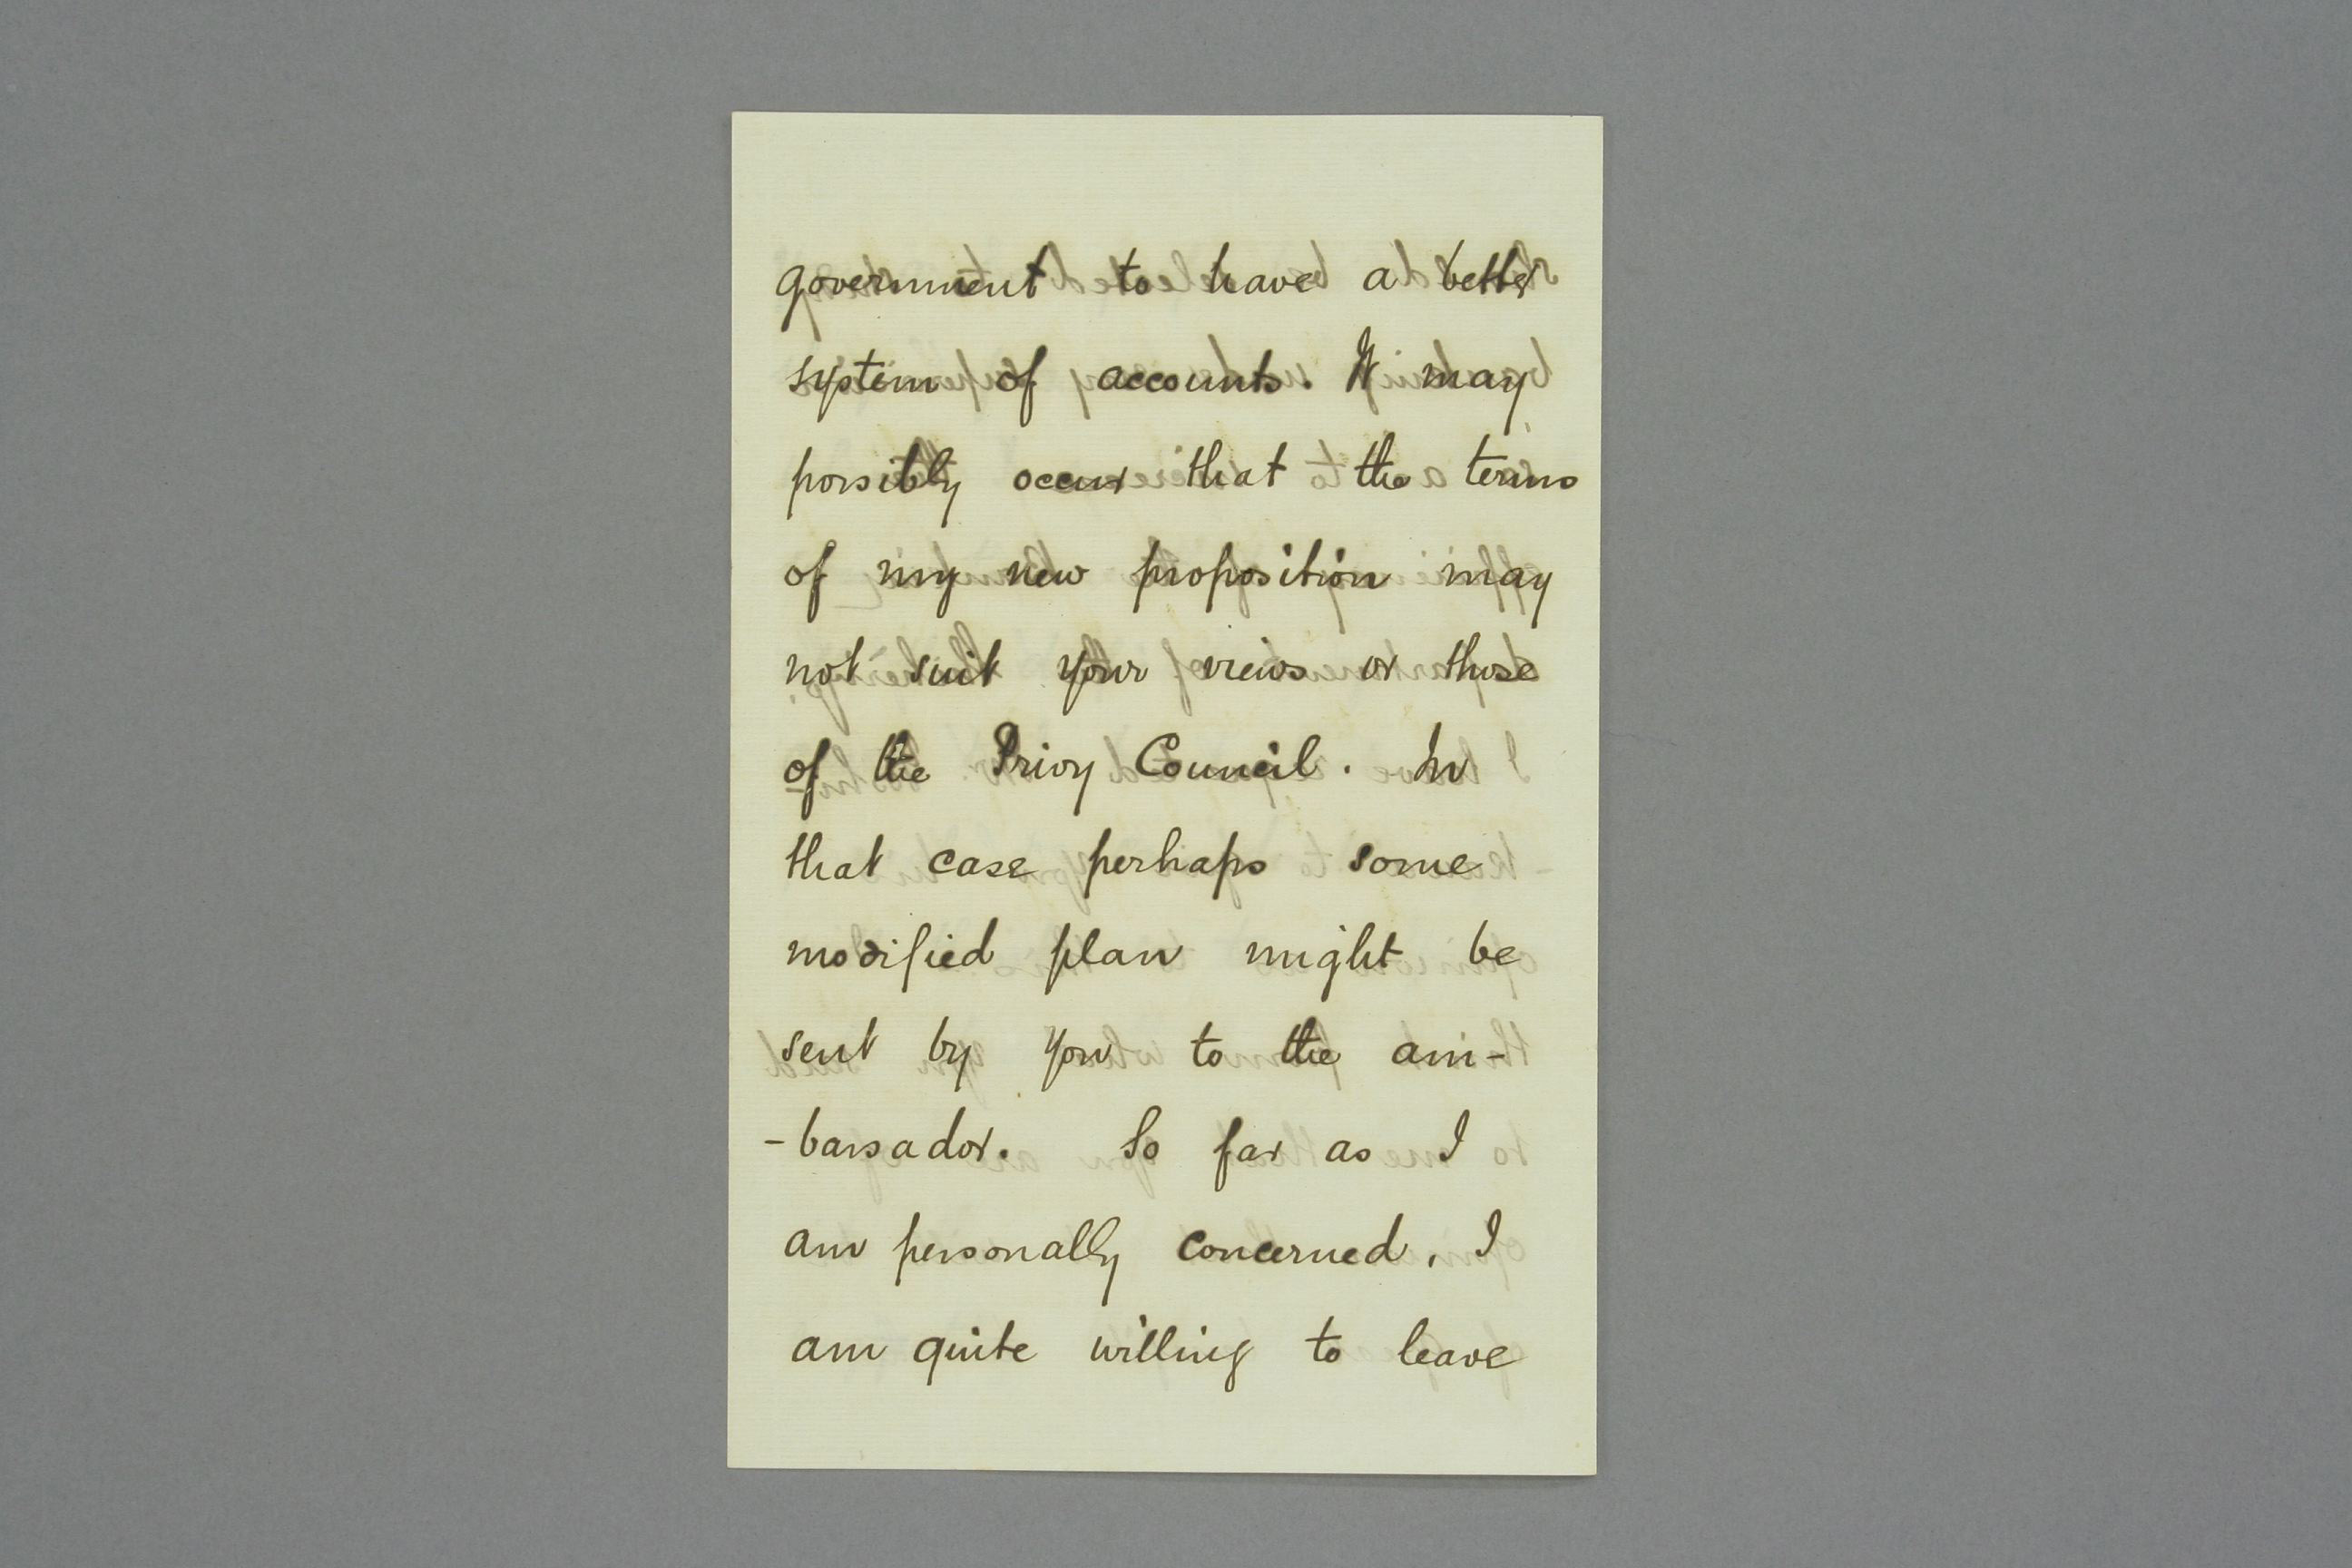 government to have a better
system of accounts. It may
possibly occur that the terms
of my new proposition may
not suit your views or those
of the Privy Council. In
that case perhaps some
modified plan might be
sent by you to the am-
-bassador. So far as I
am personally concerned, I
am quite willing to leave